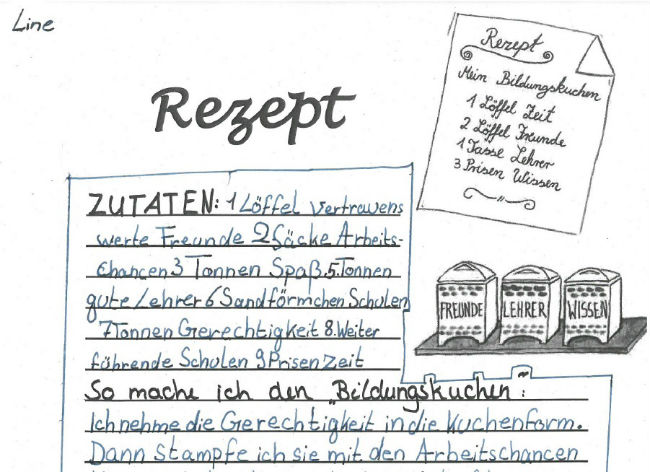 Line
Rezept
Rezept
Mein Bildungskuchen
1 Löffel Zeit
2 Löffel Freunde
1 Tasse Lehrer
3 Prisen Wissen
ZUTATEN: 1 Löffel vertrauens
werte Freunde 2 Säcke Arbeits-
chancen 3 Tonnen Spaß.5.Tonnen
gute Lehrer 6 Sandförmchen Schulen
7 Tonnen Gerechtigkeit 8.Weiter
führende Schulen 9 Prisen Zeit
FREUNDE
LEHRER
WISSEN
So mache ich den „Bildungskuchen":
Ich nehme die Gerechtigkeit in die Kuchenform.
Dann Stampfe ich sie mit den Arbeitschancen